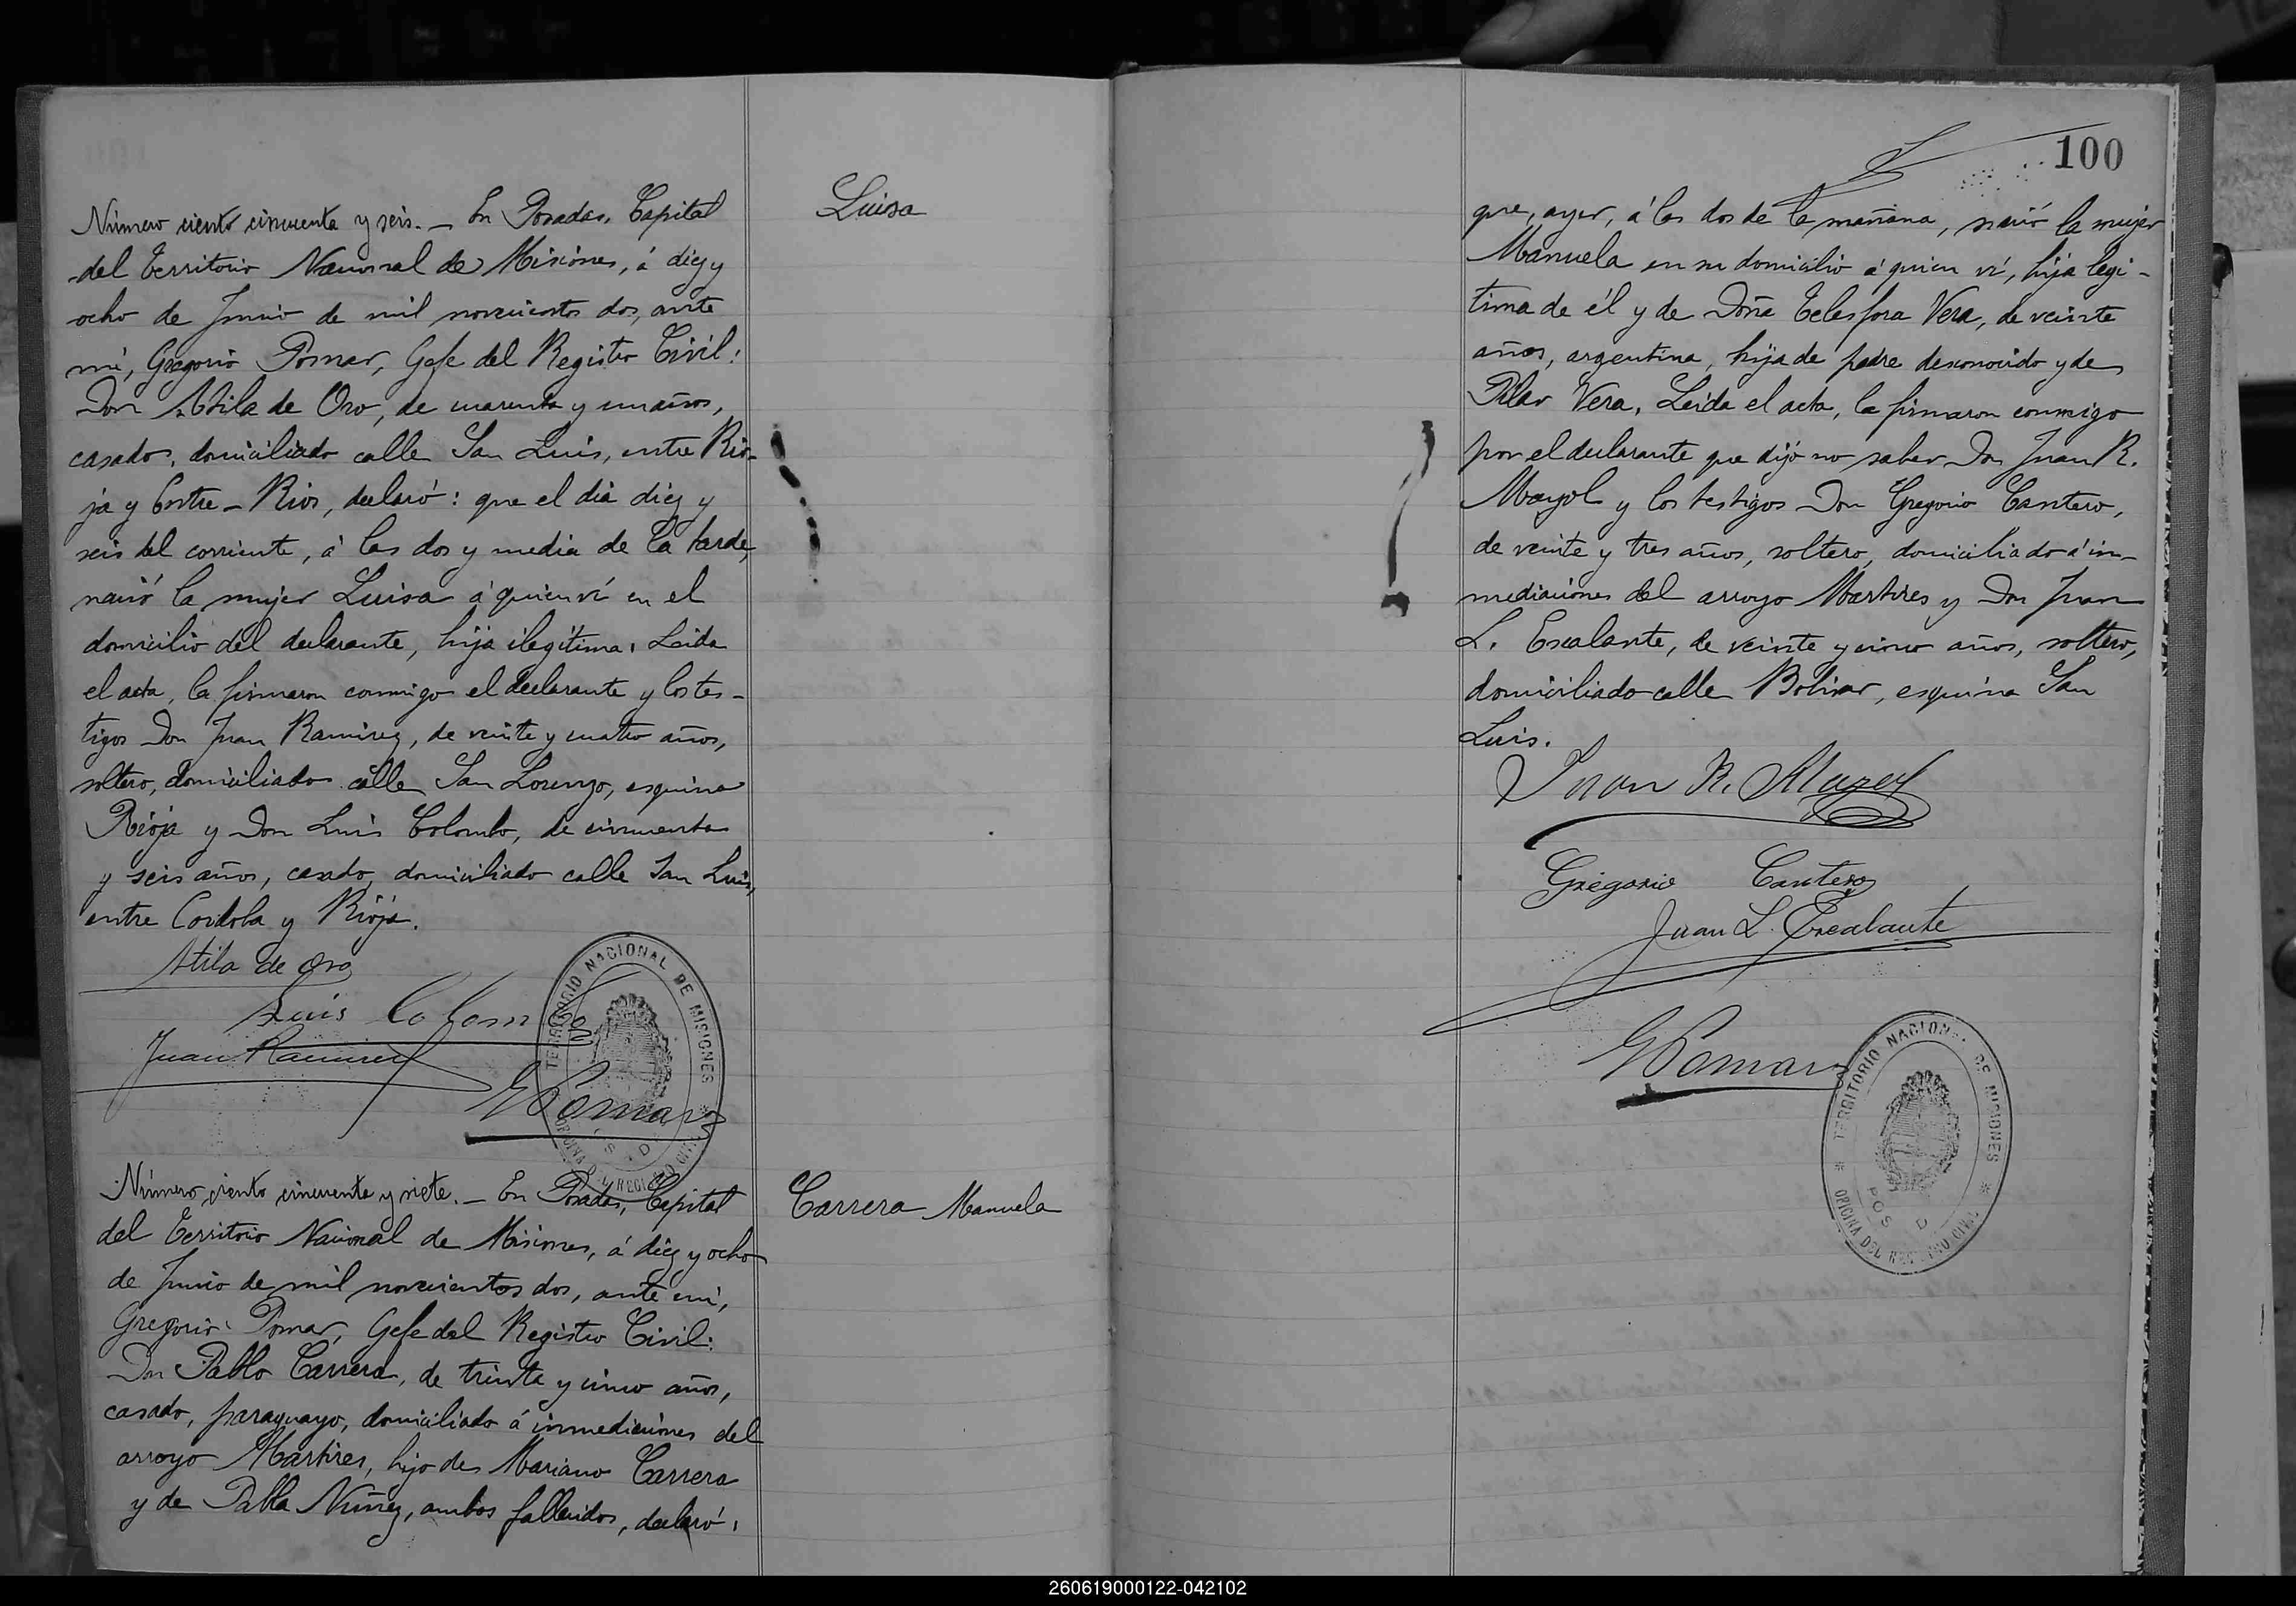 Número ciento cincuenta y seis. _ En Posadas, Capital
del Territorio Nacional de Misiones, á diez y
ocho de Junio de mil novecientos dos, ante
mí, Gregorio Pomar, Gefe del Registro Civil:
Don Atila de Oro, de cuarenta y un años,
casado, domiciliado calle San Luis, entre Rio-
ja y Entre-Rios, declaró: que el dia diez y
seis del corriente, á las dos y media de la tarde,
nació la mujer Luisa á quien ví en el
domicilio del declarante, hija ilegítima. Leida
el acta, la firmaron conmigo el declarante y los tes-
tigos Don Juan Ramirez, de veinte y cuatro años,
soltero, domiciliado calle San Lorenzo, esquina
Rioja y Don Luis Colombo, de cincuenta
y seis años, casado, domiciliado calle San Luis,
entre Cordoba y Rioja.
Atila de Oro
Luis Colombo
Juan Ramirez
G Pomar
TERRITORIO NACIONAL DE MISIONES
OFICINA DEL REGISTRO CIVIL
Luisa
Número ciento cincuenta y siete. _ En Posadas, Capital
del Territorio Nacional de Misiones, á diez y ocho
de Junio de mil novecientos dos, ante mí,
Gregorio Pomar, Gefe del Registro Civil:
Don Pablo Carrera, de treinta y cinco años,
casado, paraguayo, domiciliado á inmediaciones del
arroyo Martires, hijo de Mariano Carrera
y de Pabla Nuñez, ambos fallecidos, declaró:
Carrera Manuela
100
que, ayer, á las dos de la mañana, nació la mujer
Manuela en su domicilio á quien ví, hija legi-
tima de él y de Doña Telesfora Vera, de veinte
años, argentina, hija de padre desconocido y de
Pilar Vera. Leida el acta, la firmaron conmigo
por el declarante que dijó no saber Don Juan R.
Mayol y los testigos Don Gregorio Cantero,
de veinte y tres años, soltero, domiciliado á in-
mediaciones del arroyo Martires y Don Juan
L. Escalante, de veinte y cinco años, soltero,
domiciliado calle Bolivar, esquina San
Luis.
Juan R. Mayol
Gregorio Cantero
Juan L. Escalante
G Pomar
TERRITORIO NACIONAL DE MISIONES
OFICINA DEL REGISTRO CIVIL
260619000122-042102